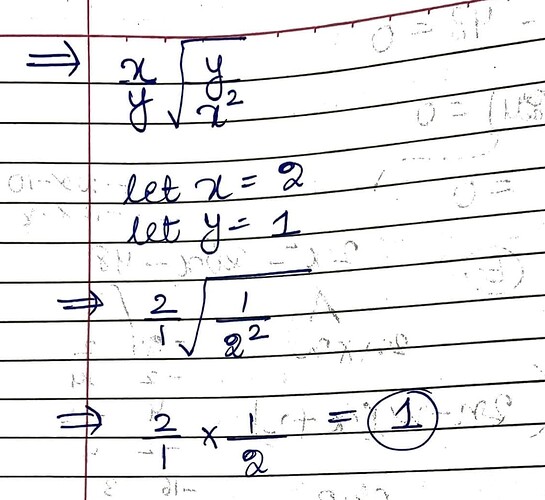 ⇒ x/y √(y/x²)
let x = 2
let y = 1
⇒ 2/1 √(1/2²)
⇒ 2/1 × 1/2 = 1